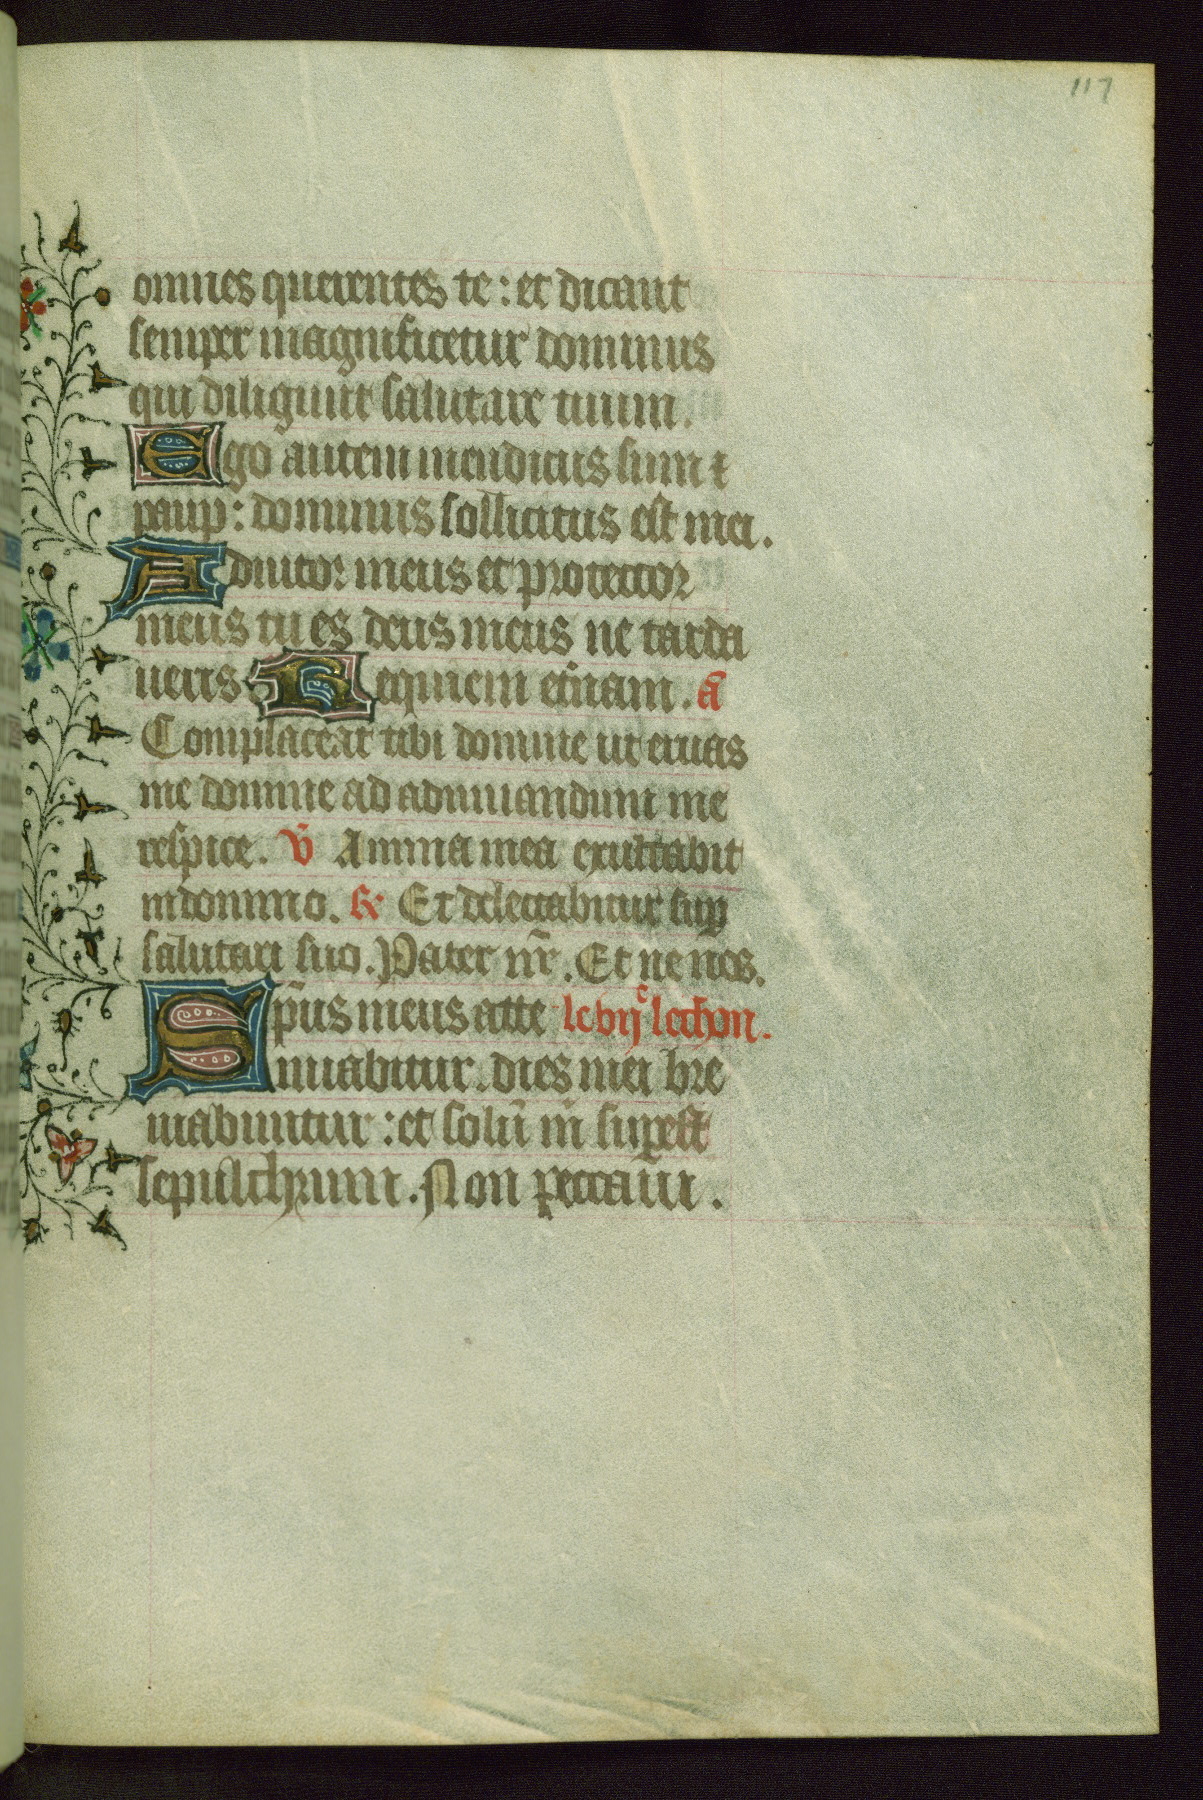 117
omnes querentes te : et dicant
semper magnificetur dominus
qui diligunt salutare tuum.
Ego autem mendicus sum ⁊
paup̲ : dominus sollicitus est mei.
Adiutor meus et protector
meus tu es deus meus ne tarda
ueris Requiem et̄nam. ā
Complaceat tibi domine ut eruas
me domine ad adiuuandum me
respice. v̄ Anima mea exultabit
in domino. ꝶ Et delectabitur suꝑ
salutari suo. Pater nr̄. Et ne nos.
Sp̄us meus atte le vijᵉ lechon.
nuabitur. dies mei bre
uiabuntur : et solū m̄ suꝑest
sepulchrum. Non peccaui.